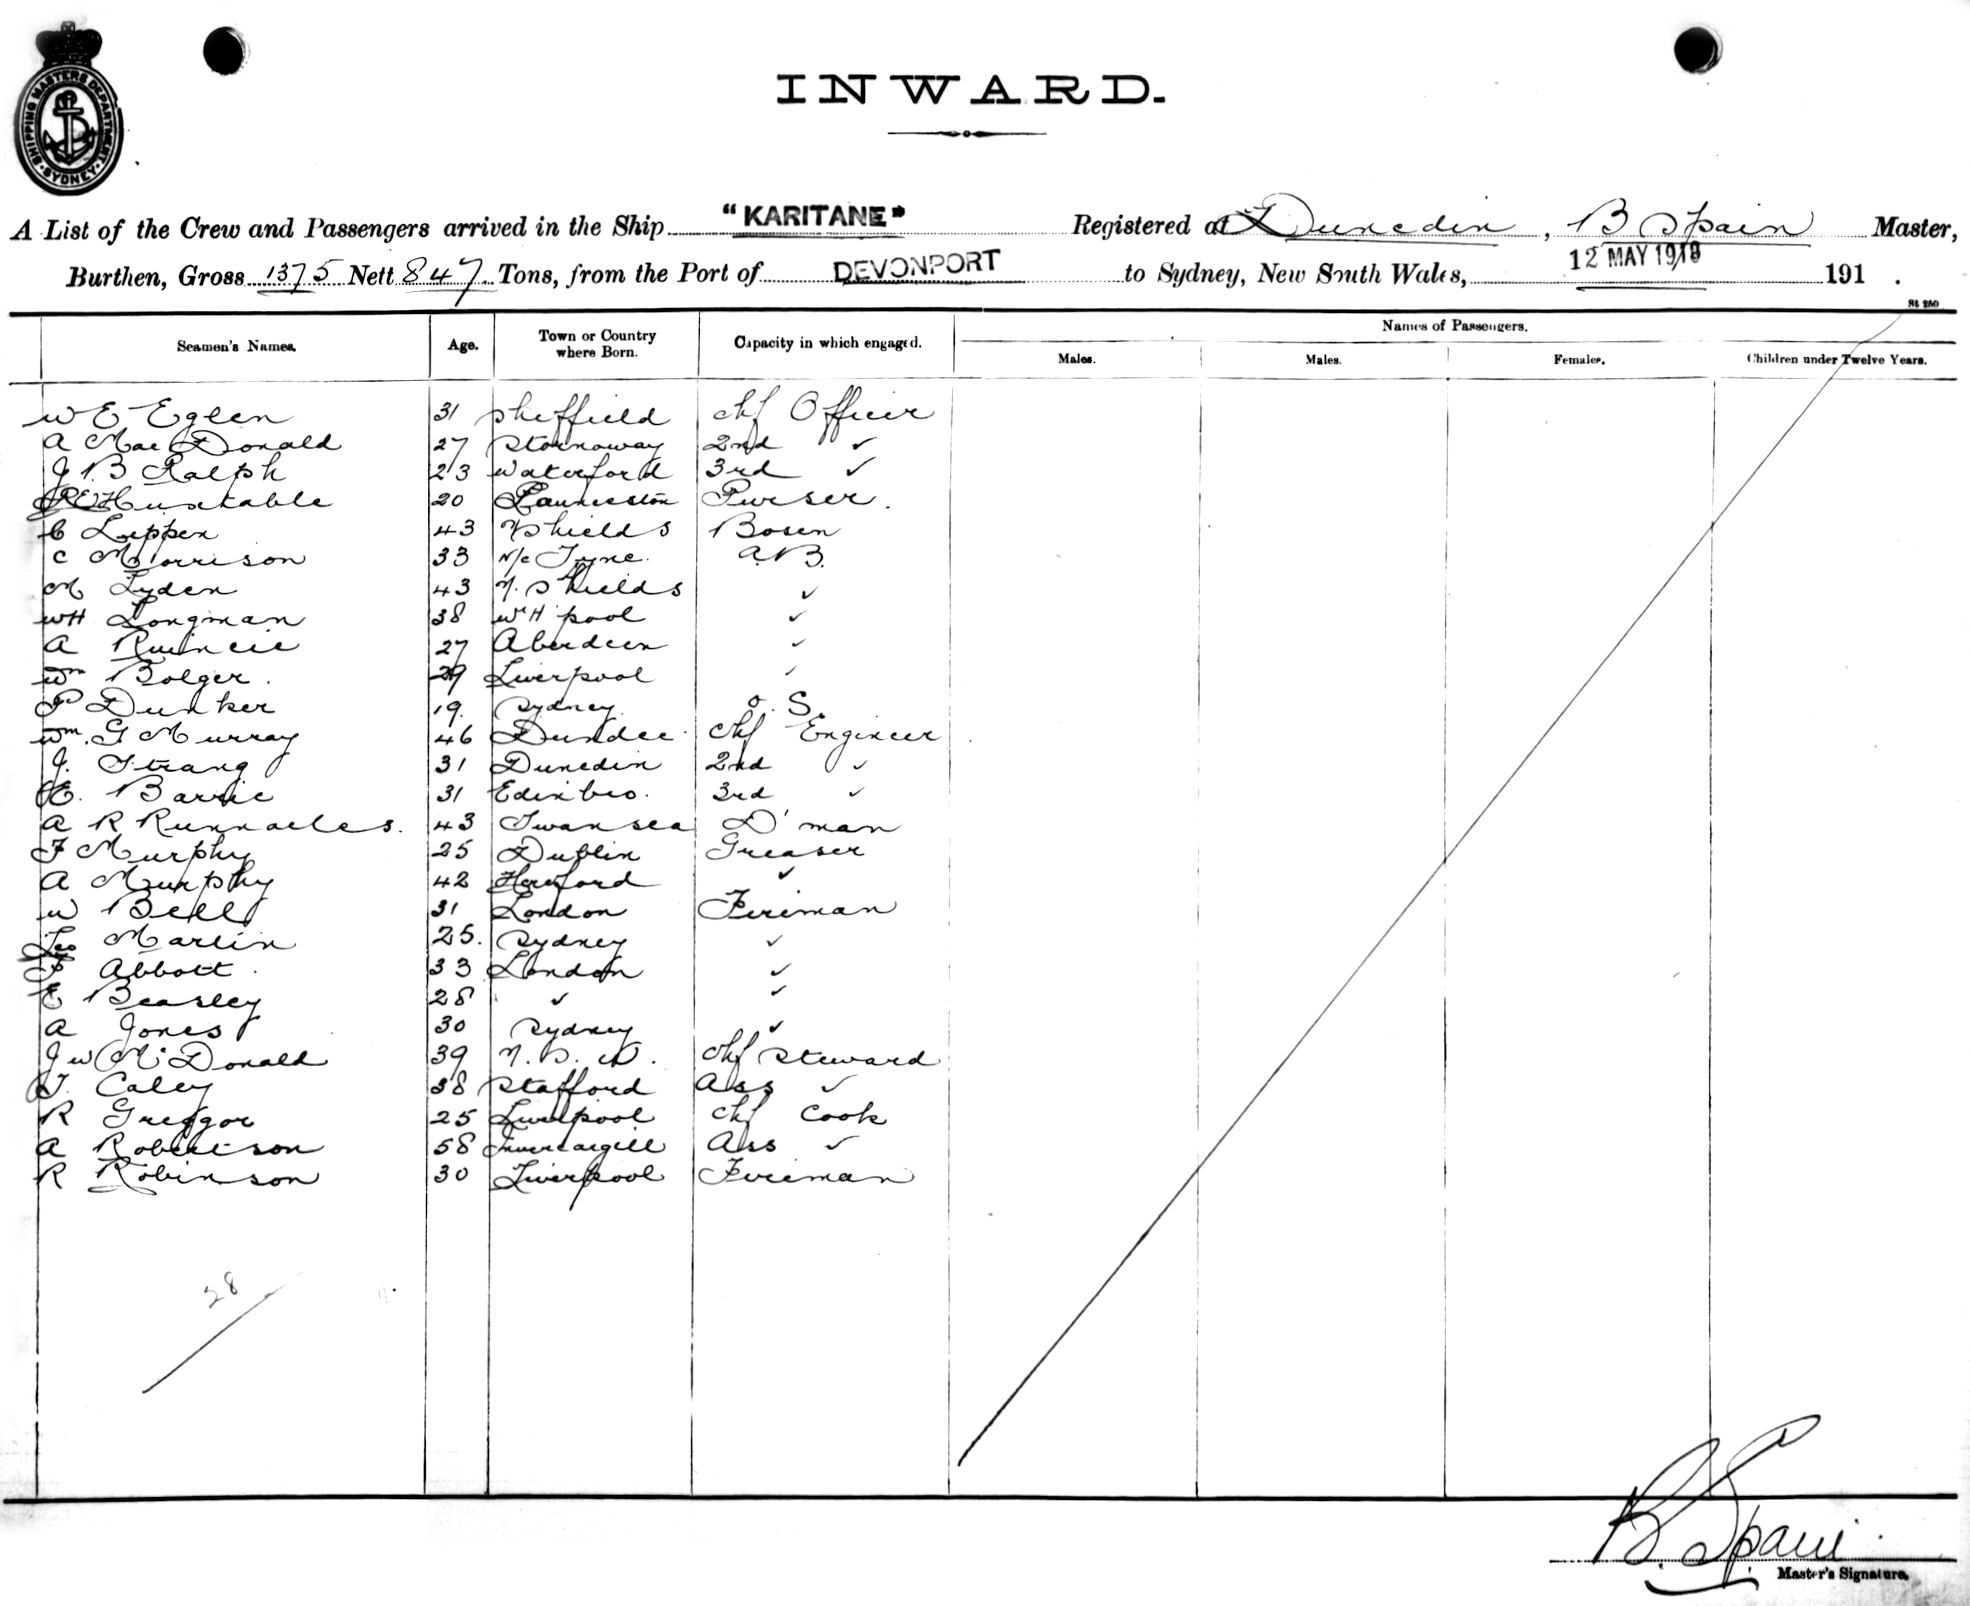 SHIPPING MASTERS DEPARTMENT
SYDNEY
INWARD.
A List of the Crew and Passengers arrived in the Ship "KARITANE" Registered at Dunedin, B Spain Master,
Burthen, Gross 1375 Nett 847 Tons, from the Port of DEVONPORT to Sydney, New South Wales, 12 MAY 1918 191 .
St 250
Seamen's Names. Age. Town or Country where Born. Capacity in which engaged. Names of Passengers.
Males. Males. Females. Children under Twelve Years.
W E Eglen 31 Sheffield chf Officer
A MacDonald 27 Stornoway 2nd ✓
J B Ralph 23 Waterford 3rd ✓
Huxtable 20 Launceston Purser.
C Lippen 43 N Shields Bosen
C Morrison 33 N/c Tyne. A.B.
M Lyden 43 N. Shields ✓
WH Longman 38 W H'pool ✓
A Ruincie 27 Aberdeen ✓
Wm Bolger. 29 Liverpool ✓
P Dunker 19. Sydney O. S.
Wm. G Murray 46 Dundee chf Engineer
J. Strang 31 Dunedin 2nd ✓
E. Barrie 31 Edinbro. 3rd ✓
A R Runnacles. 43 Swansea D'man
F Murphy 25 Dublin Greaser
A Murphy 42 Hereford ✓
W Bell 31 London Fireman
Leo Martin 25. Sydney ✓
F Abbott. 33 London ✓
E Beasley 28 ✓ ✓
A Jones 30 Sydney ✓
J W McDonald 39 N. S. W. chf Steward
T. Caley 38 Stafford Ass ✓
R Greggor 25 Liverpool chf Cook
A Robertson 58 Invercargill Ass ✓
R Robinson 30 Liverpool Fireman
28
B. Spain
Master's Signature.